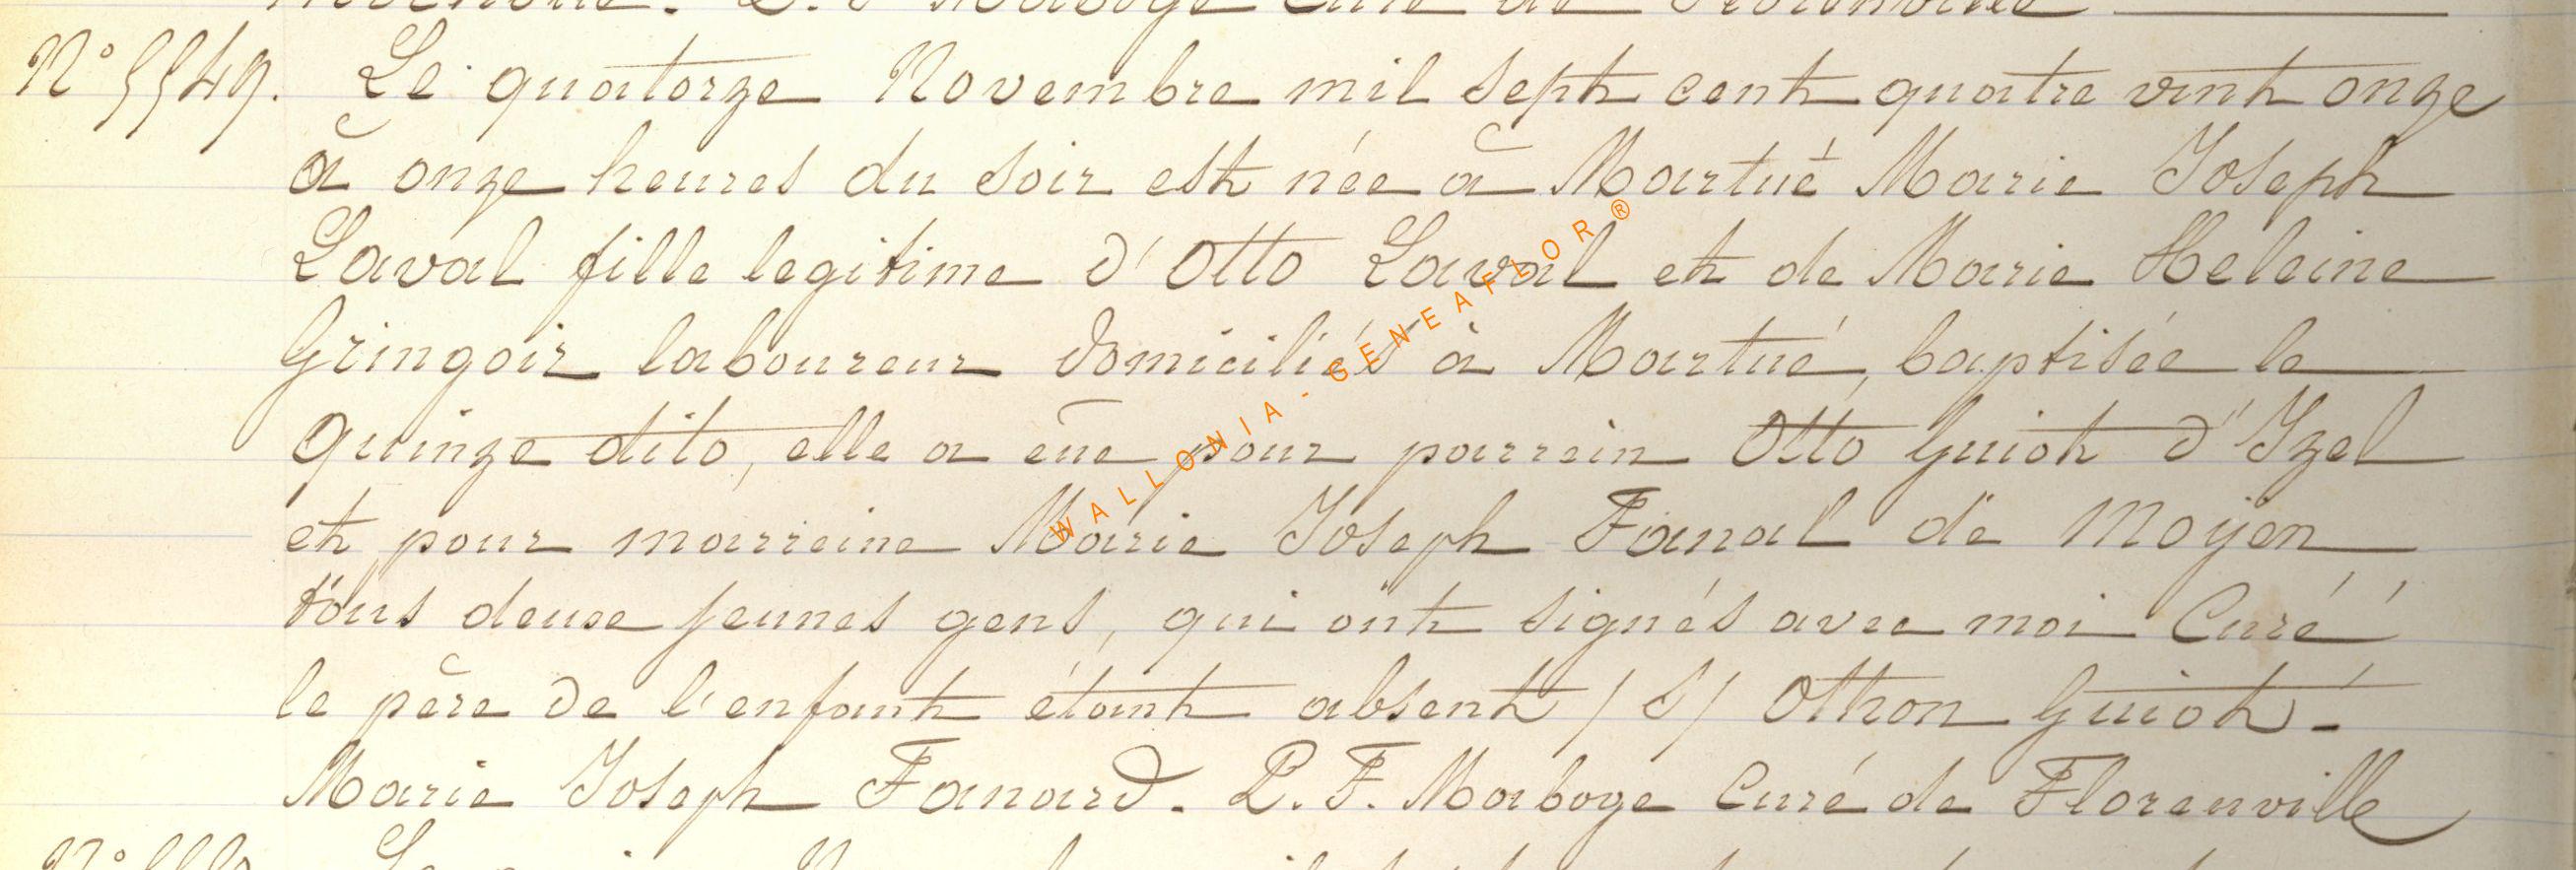 N° 5549. Le quatorze Novembre mil sept cent quatre vint onze
à onze heures du soir est née à Martué Marie Joseph
Laval fille legitime d'Otto Laval et de Marie Heleine
Gringoir laboureur domiciliés à Martué, baptisée le
quinze dito, elle a eue pour parrein Otto Guiot d'Izel
et pour marreine Marie Joseph Fanal de Moyen
tous deuse jeunes gens, qui ont signés avec moi Curé
le père de l'enfant étant absent /S/ Othon Guiot -
Marie Joseph Fanard. P. F. Maboge Curé de Florenville
WALLONIA - GENEAFLOR ®